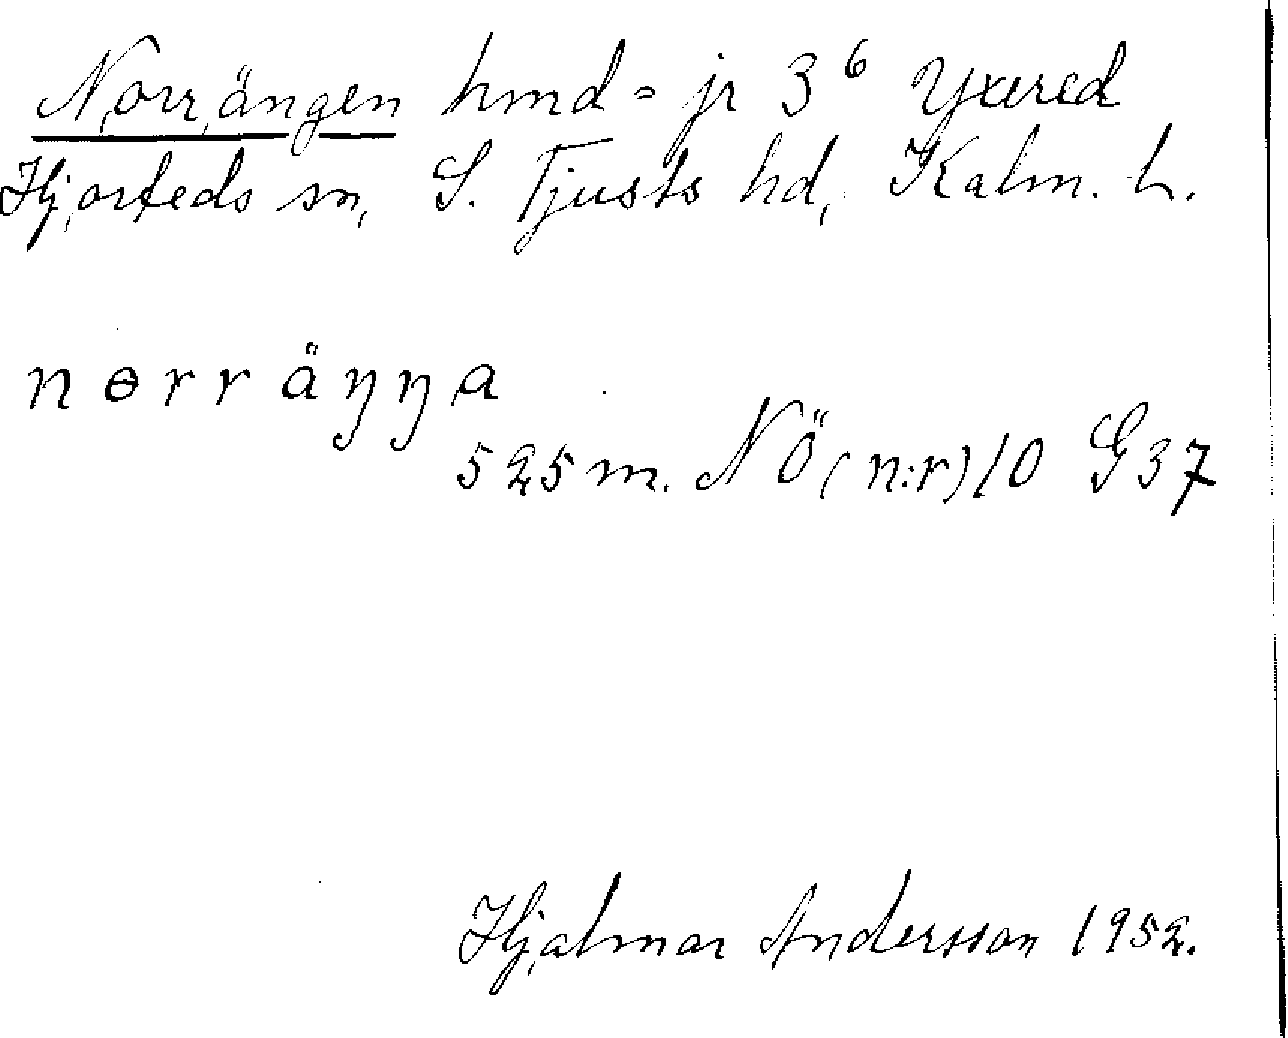 Norrängen hmd = jr 3⁶ Yxered
Hjorteds sn, S. Tjusts hd, Kalm. L.
nɵrräŋŋa
525 m. NÖ (n:r) 10 G37
Hjalmar Andersson 1952.